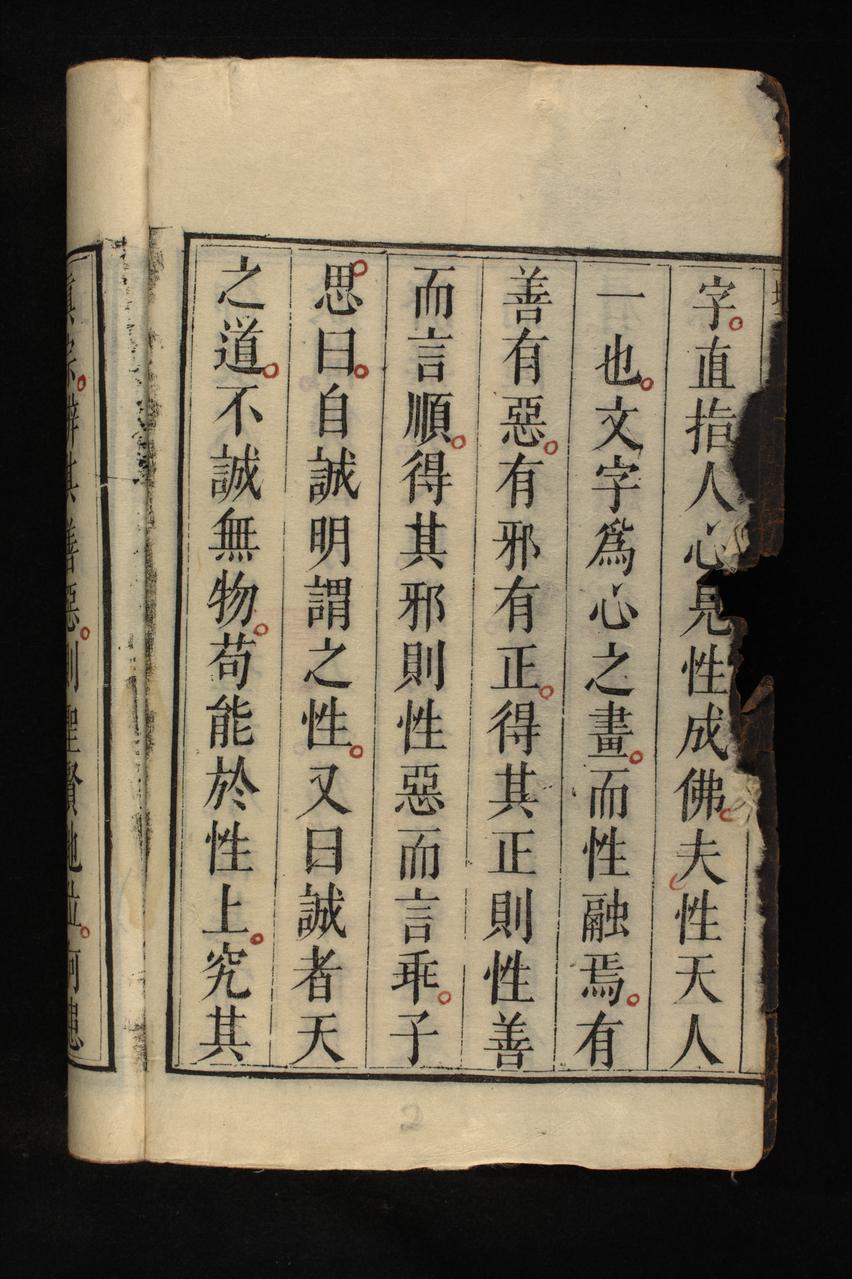 字。直指人心見性成佛。夫性天人
一也。文字爲心之畫。而性融焉。有
善有惡。有邪有正。得其正則性善
而言順。得其邪則性惡而言乖。子
思曰。自誠明謂之性。又曰誠者天
之道。不誠無物。苟能於性上。究其
眞宗。辨其善惡。則聖賢地位。何患